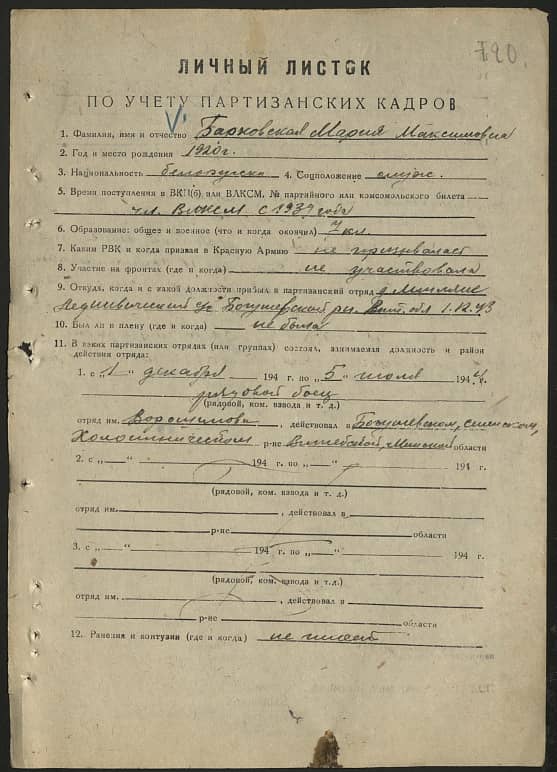 720.
ЛИЧНЫЙ ЛИСТОК
ПО УЧЕТУ ПАРТИЗАНСКИХ КАДРОВ
1. Фамилия, имя и отчество Барковская Мария Максимовна
2. Год и место рождения 1920 г.
3. Национальность белоруска 4. Соцположение служ.
5. Время поступления в ВКП(б) или ВЛКСМ, № партийного или комсомольского билета
чл. ВЛКСМ с 1939 года
6. Образование: общее и военное (что и когда окончил) 7 кл.
7. Каким РВК и когда призван в Красную Армию не призывалась
8. Участие на фронтах (где и когда) не участвовала
9. Откуда, когда и с какой должности прибыл в партизанский отряд
Богушевского рн. Вит. обл 1.12.43
10. Был ли в плену (где и когда) не была
11. В каких партизанских отрядах (или группах) состоял, занимаемая должность и район
действия отряда:
1. с „1“ декабря 194 г. по „5“ июля 1944 г.
рядовой боец
(рядовой, ком. взвода и т. д.)
отряд им. Ворошилова, действовал в Богушевском, Сенненском,
Холопиничском р-не Витебской, Минской области
2. с „ “ 194 г. по „ “ 194 г.
(рядовой, ком. взвода и т. д.)
отряд им. , действовал в
р-не области
3. с „ “ 194 г. по „ “ 194 г.
(рядовой, ком. взвода и т.д.)
отряд им. , действовал в
р-не области
12. Ранения и контузии (где и когда) не имеет